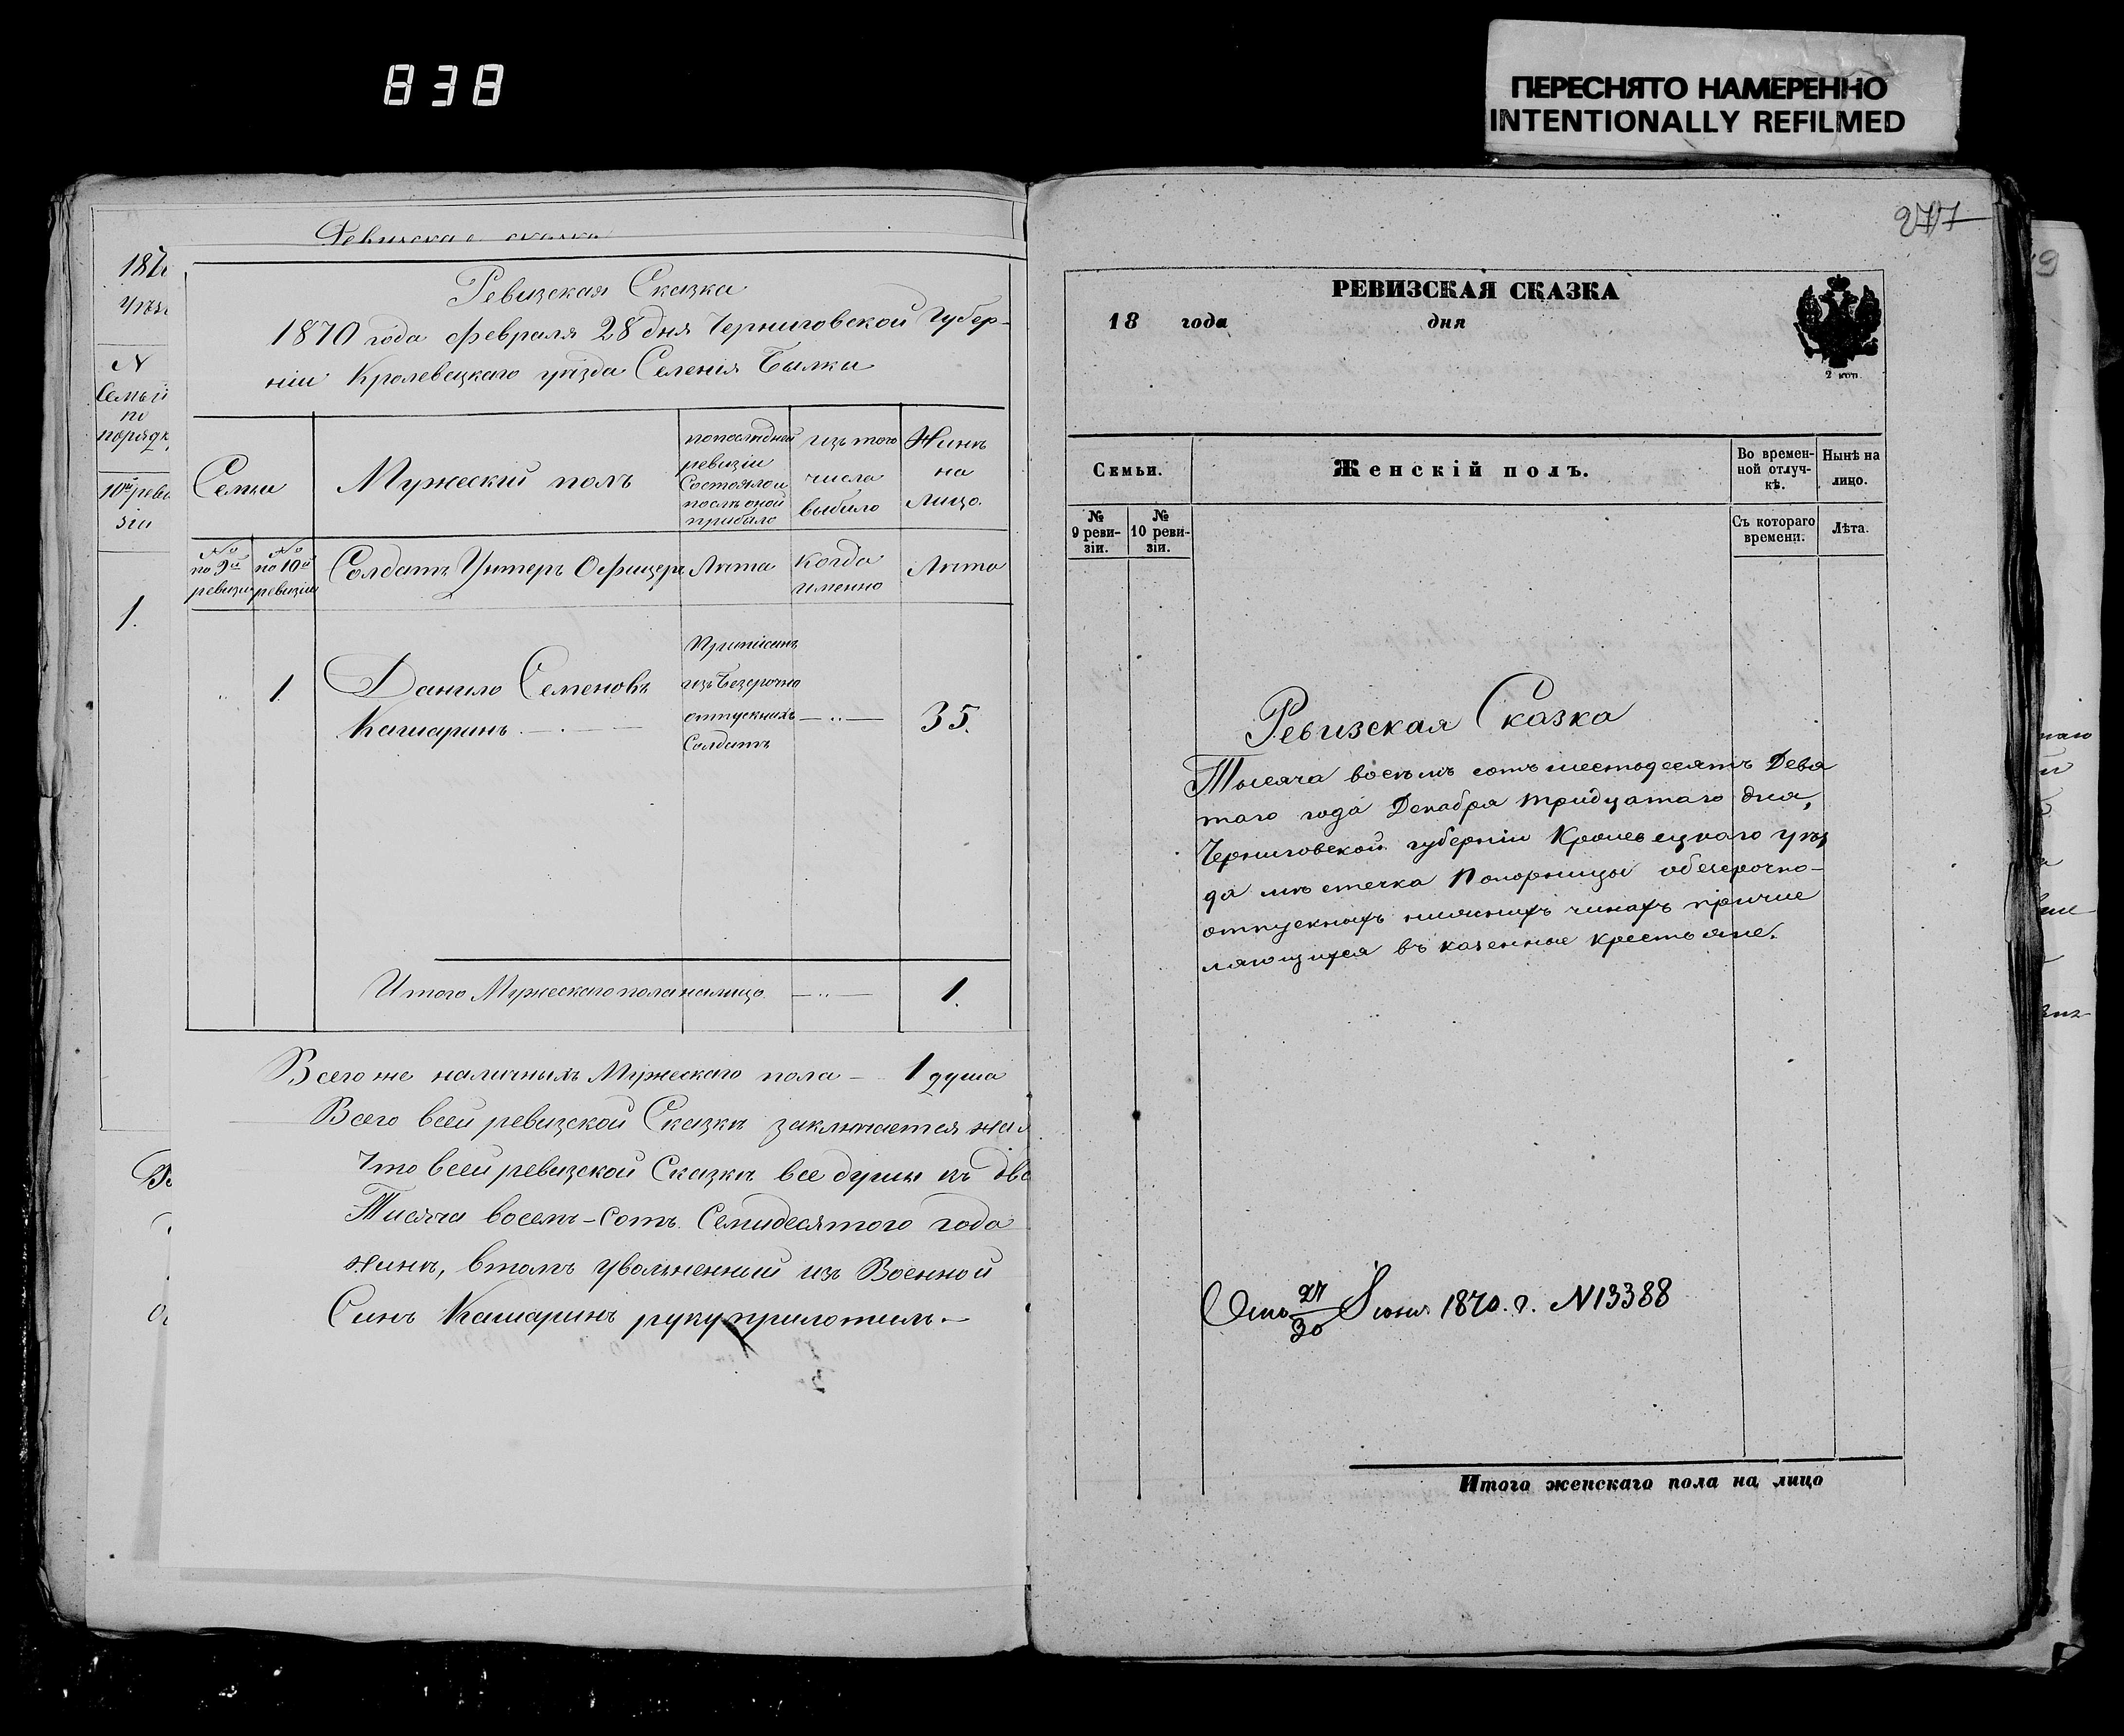 838
ПЕРЕСНЯТО НАМЕРЕННО
INTENTIONALLY REFILMED
Ревизская сказка
187
N
Семьи
по
порядк
10й реви
зіи
1.
Ревизская Сказка
1870 года февраля 28 дня Черниговской Губер-
ніи Кролевецкаго уѣзда Селенія Билки
Семьи
Мужескій полъ
попослѣдней
ревизіи
Состояло и
послѣ оной
прибило
изъ того
числа
выбило
Нинѣ
на
лицо.
No по 9й ревизіи
No по 10й ревизіи
Солдатъ Унтеръ Офицеръ
Лѣта
когда
именно
Лѣта
1
Данило Семеновъ
Кашаринъ
Приписанъ
изъ Безсрочно
отпускнихъ
Солдатъ
35.
Итого Мужескаго пола налицо
1.
Всего же наличныхъ Мужескаго пола — 1 душа
Всего всей ревизской Сказкѣ заключается на
Что всей ревизской Сказкѣ все души къ дво
Тисяча восемъ-сотъ Семидесятого года
Нинѣ, втомъ увольненний изъ Военной
Синъ Кашаринъ руку приложилъ.—
277
РЕВИЗСКАЯ СКАЗКА
18 года дня
2 коп.
Семьи.
Женскій полъ.
Во времен-
ной отлуч-
кѣ.
Нынѣ на
лицо.
№
9 реви-
зіи.
№
10 реви-
зіи.
Съ котораго
времени.
Лѣта.
Ревизская Сказка
Тысяча восемь сотъ шестьдесятъ Девя
таго года Декабря тридцатаго дня,
Черниговской губерніи Кролевецкаго уѣз
да мѣстечка Понорницы обезсрочно-
отпускныхъ нижнихъ чинахъ причис
ляющихся въ казенные крестьяне.
27
30 Іюня 1870. г. N 13388
Итого женскаго пола на лицо